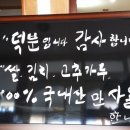 "덕분입니다 감사합니
"쌀. 김치. 고추가루.
00% 국내산만 사용